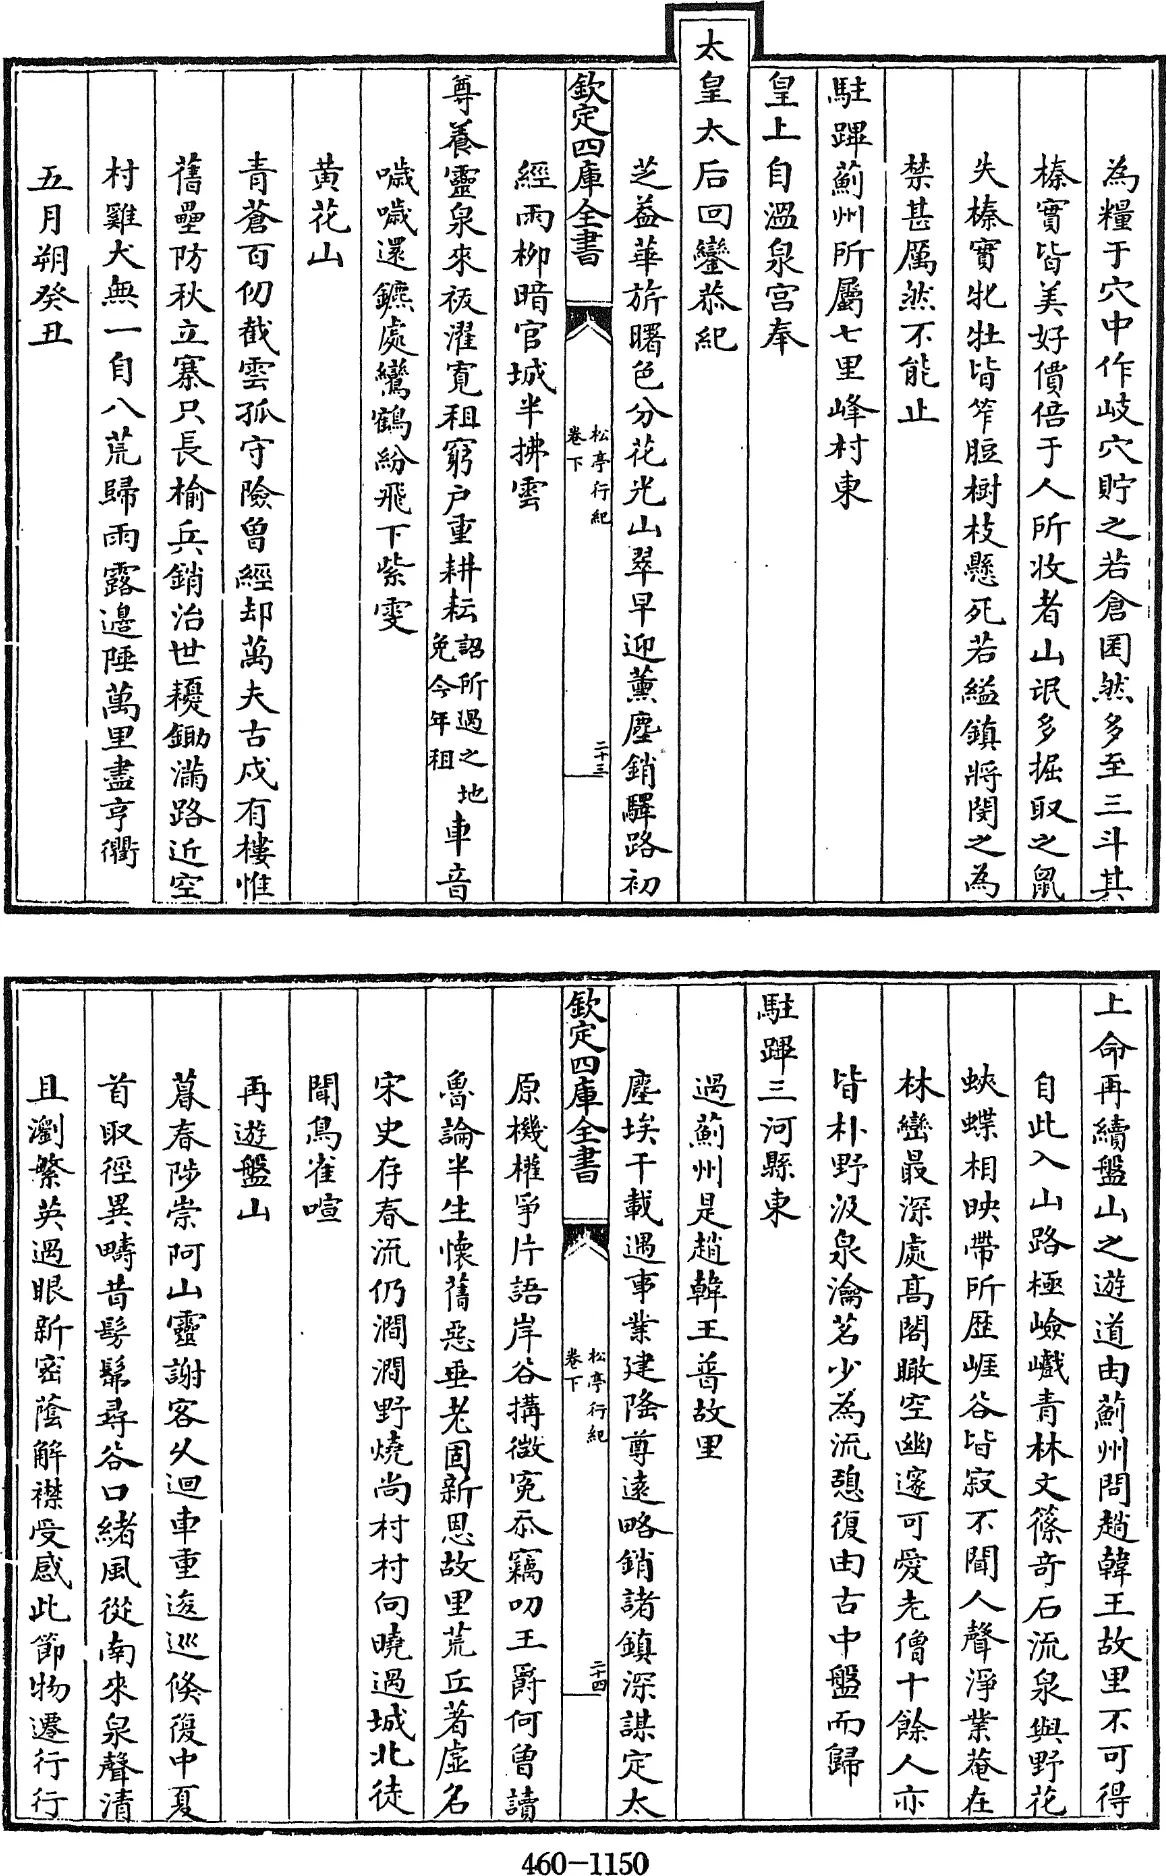 為糧于穴中作岐穴貯之若倉囷然多至三斗其
榛實皆美好價倍于人所收者山氓多掘取之鼠
失榛實牝牡皆笮脰樹枝懸死若縊鎮將閔之為
禁甚厲然不能止
駐蹕薊州所屬七里峰村東
皇上自溫泉宫奉
太皇太后回鑾恭紀
芝葢華旂曙色分花光山翠早迎薰塵銷驛路初
欽定四庫全書
松亭行紀
卷下
二十三
經雨柳暗官城半拂雲
尊養靈泉來祓濯寛租窮户重耕耘詔所過之地免今年租車音
噦噦還鑣處鸞鶴紛飛下紫雯
黄花山
青蒼百仞截雲孤守險曾經却萬夫古戍有樓惟
舊壘防秋立寨只長榆兵銷治世耰鋤滿路近空
村雞犬無一自八荒歸雨露邊陲萬里盡亨衢
五月朔癸丑
上命再續盤山之遊道由薊州問趙韓王故里不可得
自此入山路極嶮巇青林文篠奇石流泉與野花
蛺蝶相映帶所歴崕谷皆寂不聞人聲淨業菴在
林巒最深處髙閣瞰空幽邃可愛老僧十餘人亦
皆朴野汲泉瀹茗少為流憩復由古中盤而歸
駐蹕三河縣東
過薊州是趙韓王普故里
塵埃千載遇事業建隆尊遠略銷諸鎮深謀定太
欽定四庫全書
松亭行紀
卷下
二十四
原機權爭片語岸谷搆微寃忝竊叨王爵何曾讀
魯論半生懷舊惡垂老固新恩故里荒丘著虛名
宋史存春流仍澗澗野燒尚村村向曉過城北徒
聞鳥雀喧
再遊盤山
暮春陟崇阿山靈謝客乆迴車重逡巡倏復中夏
首取徑異疇昔髣髴尋谷口緒風從南來泉聲清
且瀏繁英過眼新密蔭解襟受感此節物遷行行
460-1150